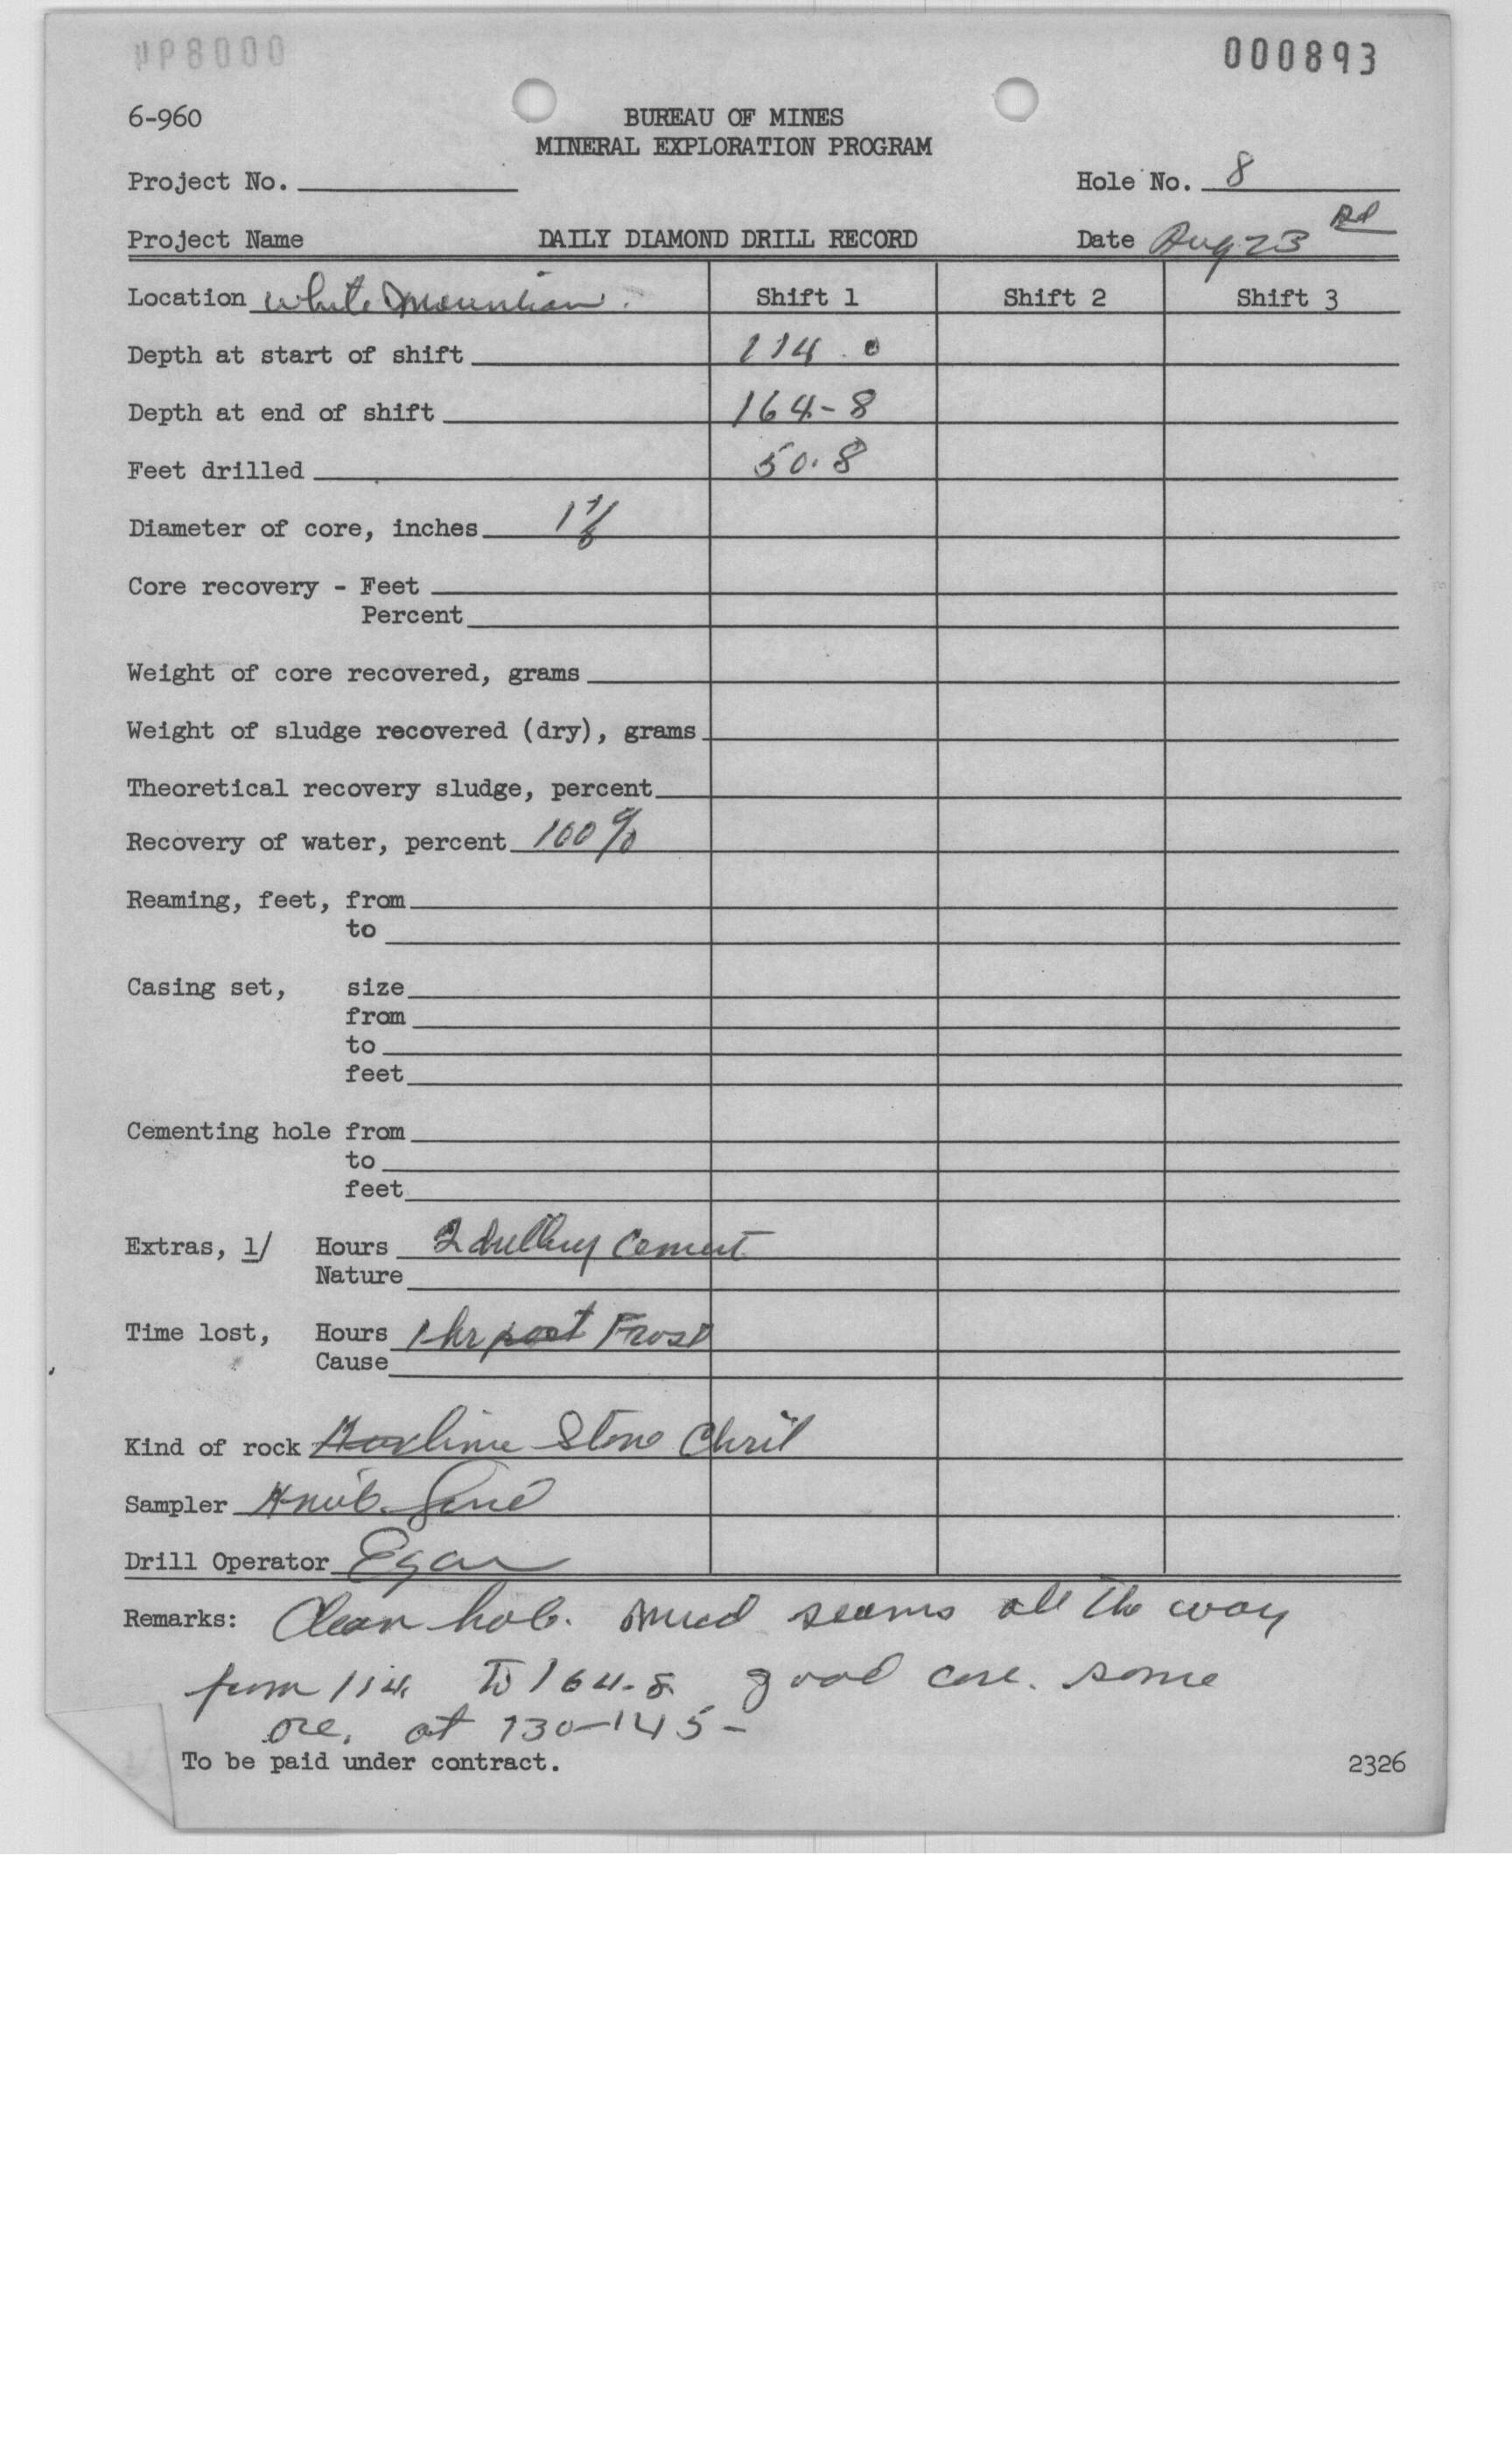 000893
6-960
BUREAU OF MINES
MINERAL EXPLORATION PROGRAM
Project No. Hole No. 8
Project Name DAILY DIAMOND DRILL RECORD Date Aug 23 Rd
Location White Mountian. Shift 1 Shift 2 Shift 3
Depth at start of shift 114.0
Depth at end of shift 164-8
Feet drilled 50.8
Diameter of core, inches 1 1/8
Core recovery - Feet
Percent
Weight of core recovered, grams
Weight of sludge recovered (dry), grams
Theoretical recovery sludge, percent
Recovery of water, percent 100%
Reaming, feet, from
to
Casing set, size
from
to
feet
Cementing hole from
to
feet
Extras, 1/ Hours 2 drilling Cement
Nature
Time lost, Hours 1 hr Frost
Cause
Kind of rock lime Stone
Sampler
Drill Operator Egan
Remarks: Clean hole. mud seams all the way
from 114. To 164-8 good core. some
ore. at 130-145-
To be paid under contract. 2326